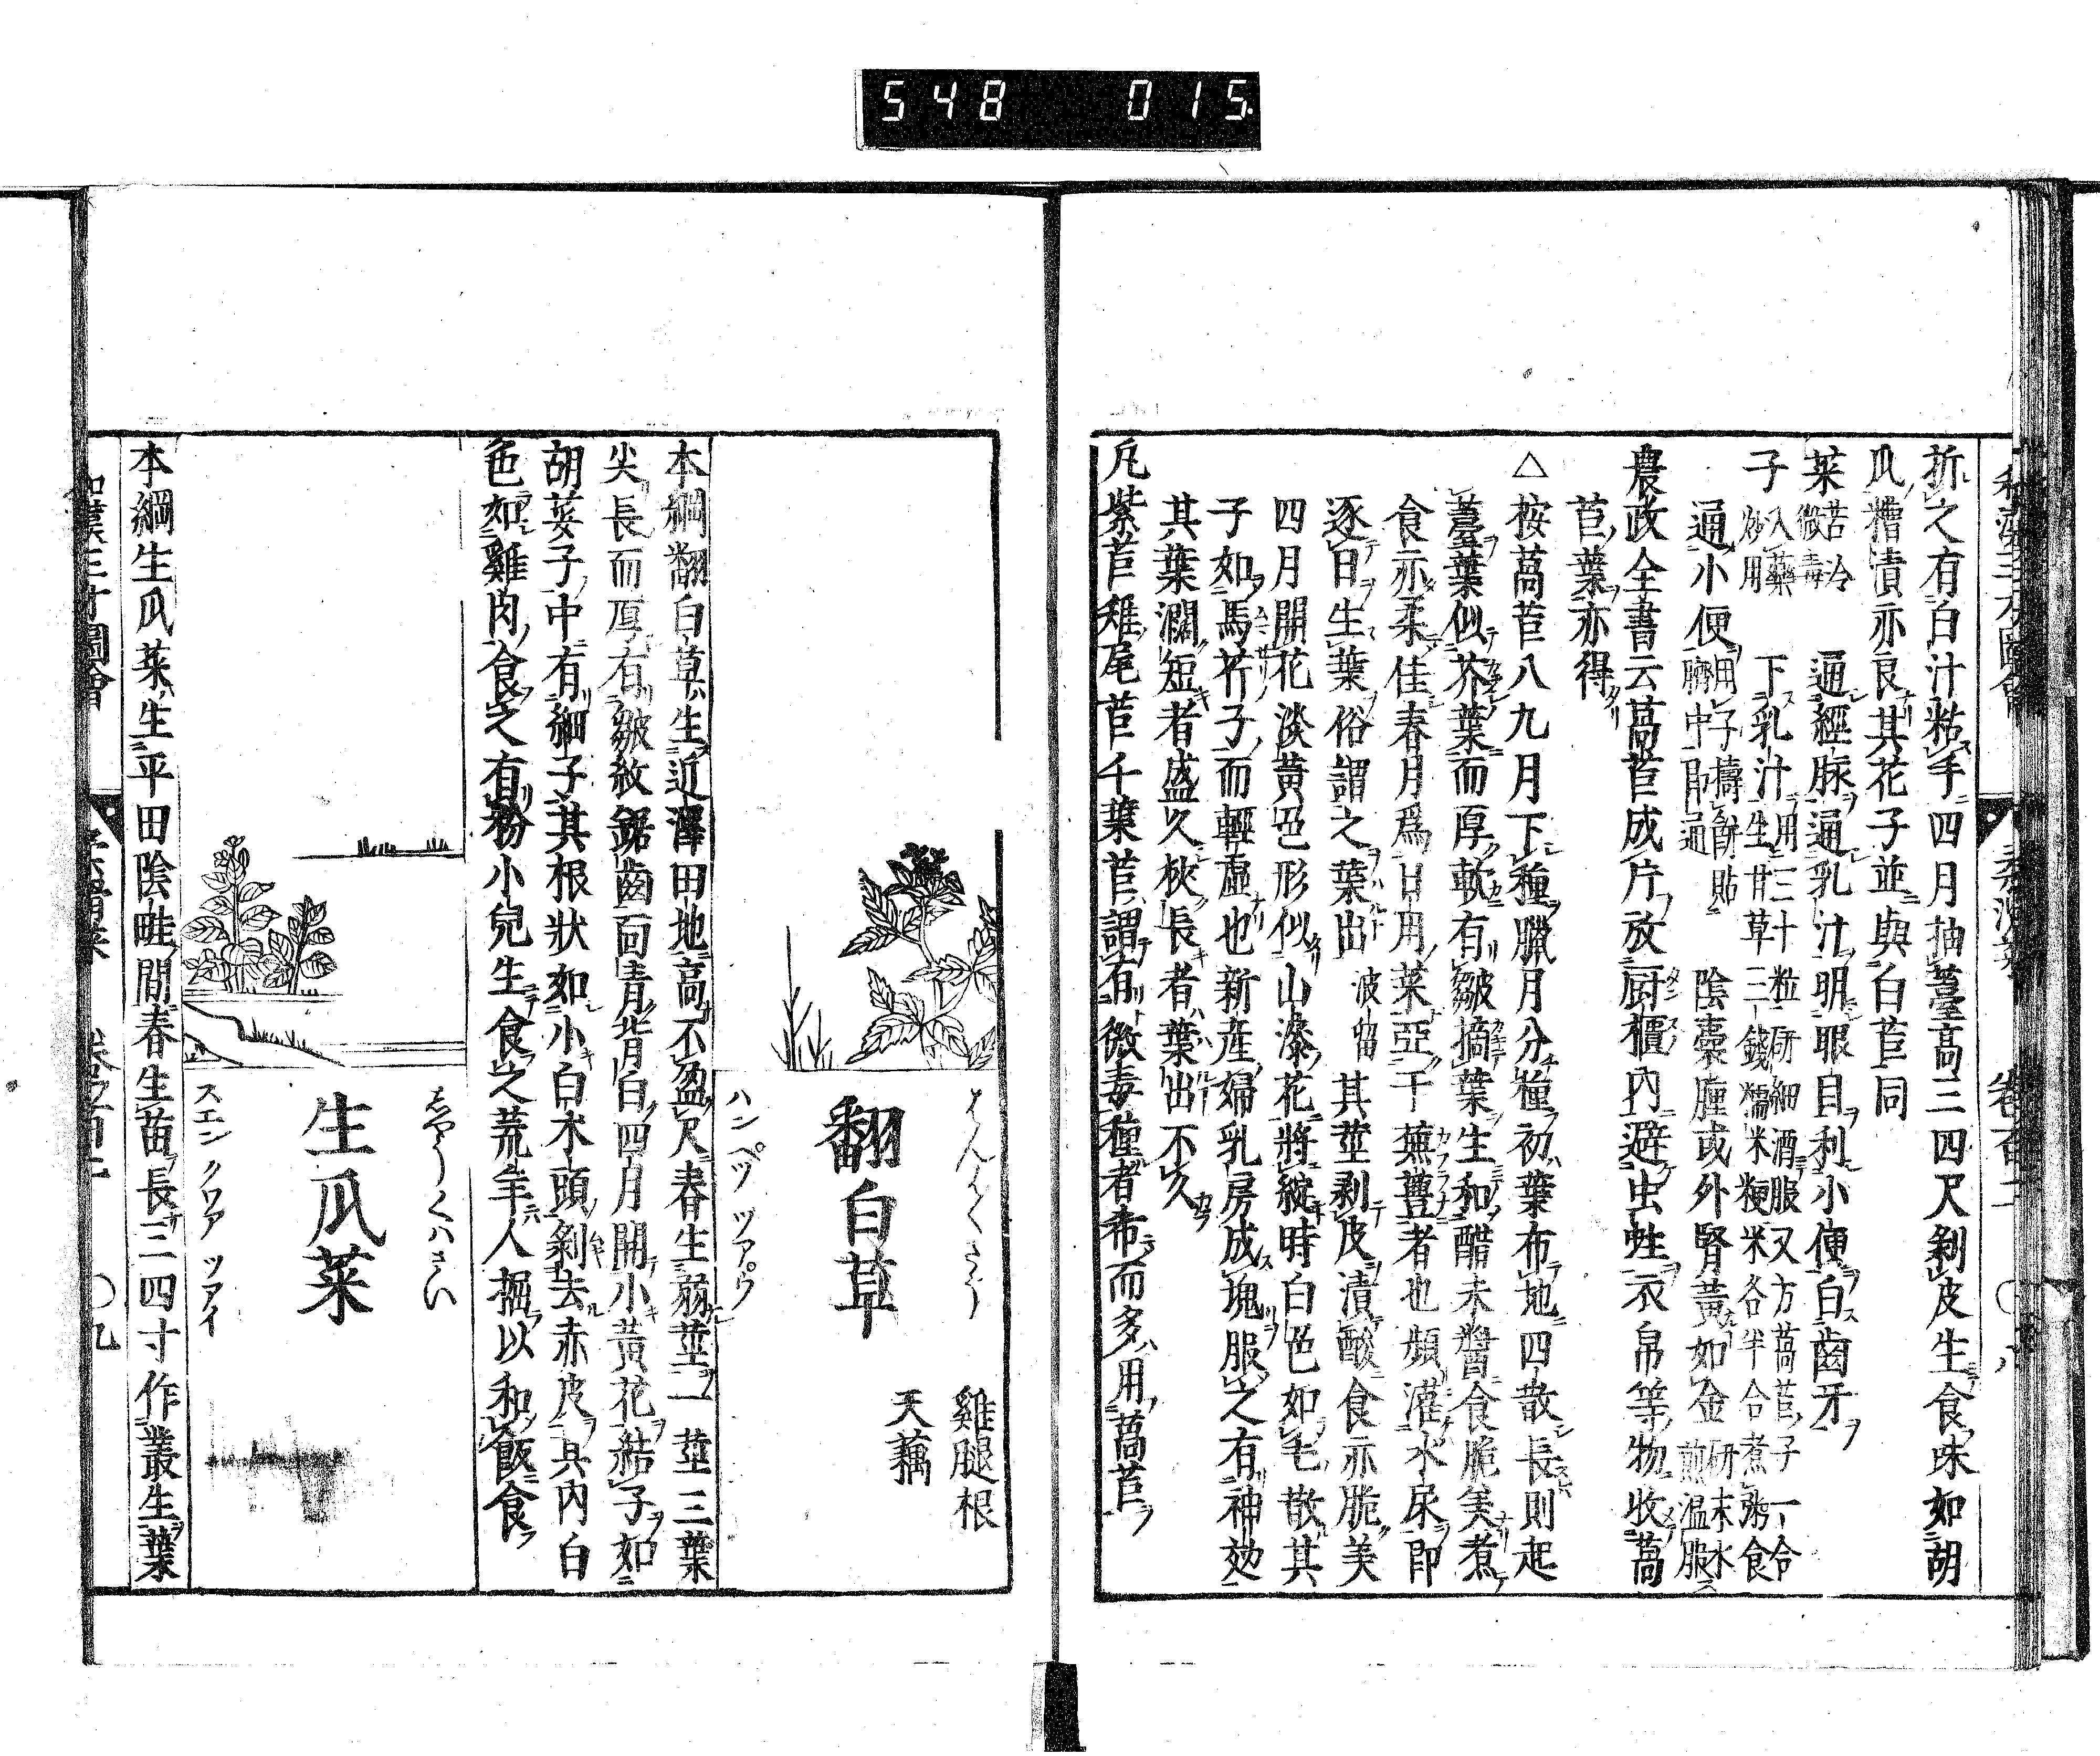 548 015
折之有白汁粘手四月抽薹高三四尺剝皮生食味如胡
瓜糟漬亦良其花子並與白苣同
菜苦冷微毒 通經脉通乳汁明眼目利小便白齒牙
子入藥炒用 下乳汁用三十粒研細酒服又方萵苣子一合生甘草三錢糯米粳米各半合煮粥食
通小便用子擣餠貼臍中即通 陰囊腫或外腎黃如金研末水煎温服
農政全書云萵苣成片放厨櫃內避虫蛀衣帛等物收萵
苣葉亦得
△按萵苣八九月下種臘月分種初葉布地四散長則起
薹葉似芥葉而厚軟有皺摘葉生和醋未醬食脆美煮
食亦柔佳春月爲日用菜亞于蕪菁者也頻灌水尿即
逐日生葉俗謂之葉出波留其莖剥皮漬酸食亦脆美
四月開花淡黃色形似山漆花將綻時白色如毛散其
子如馬芹子而輕虛也新産婦乳房成塊服之有神効
其葉濶短者盛久狹長者葉出不久
凡紫苣雉尾苣千葉苣謂有微毒種者希而多用萵苣
翻白草
はんはくさう
ハンペツ ツアウ
雞腿根
天藕
本綱翻白草生近澤田地高不盈尺春生弱莖一莖三葉
尖長而厚有皺紋鋸齒面青背白四月開小黃花結子如
胡荽子中有細子其根狀如小白朮頭剝去赤皮其內白
色如雞肉食之有粉小兒生食之荒年人掘以和飯食
生瓜菜
しやうくハさい
スエン クワア ツアイ
本綱生瓜菜生平田陰畦間春生苗長三四寸作叢生葉
和漢三才圖會 柔滑菜 卷ノ百二 〇九